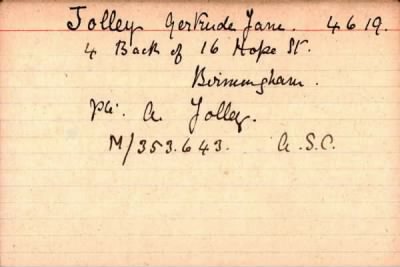 Jolley Gertrude Jane. 4619.
4 Back of 16 Hope St.
Birmingham.
Pte. A. Jolley.
M/353.643. A.S.C.